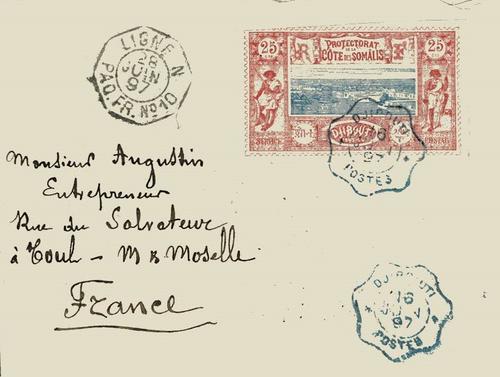 LIGNE N
18
JUIN
97
PAQ. FR. Nº 10
25 25
PROTECTORAT
DE LA
CÔTE DES SOMALIS
R F
DJIBOUTI
POSTES
DJIBOUTI
16
97
POSTES
Monsieur Augustin
Entrepreneur
Rue du Salvateur
à Toul - M & Moselle
France
DJIBOUTI
16
97
POSTES